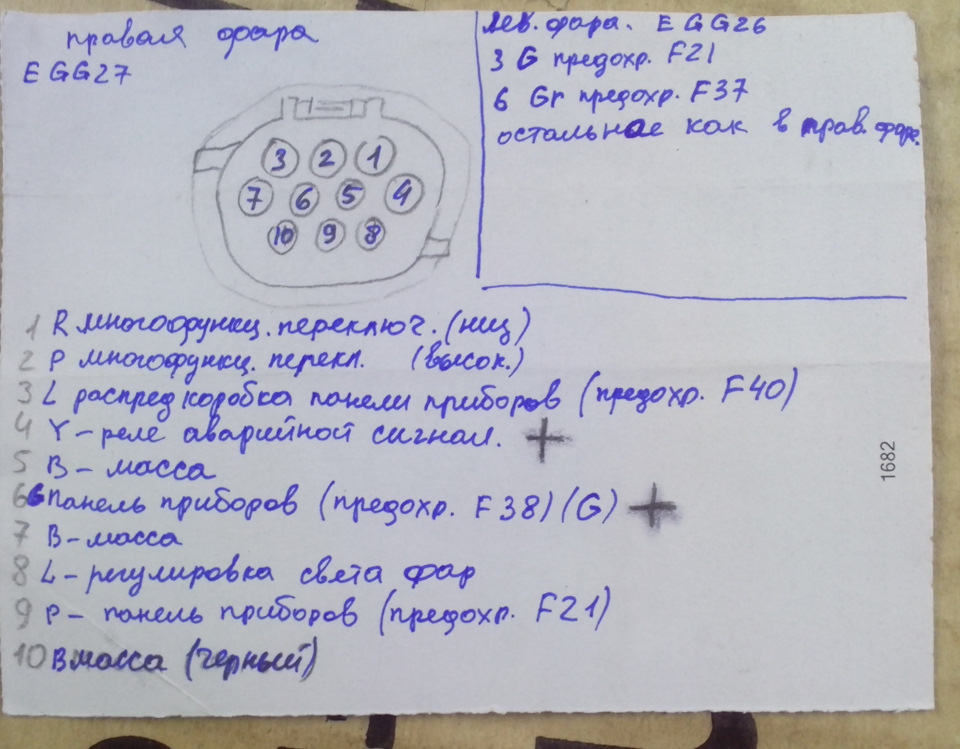 правая фара
EGG27
3 2 1
7 6 5 4
10 9 8
лев. фара. EGG26
3 G предохр. F21
6 Gr предохр. F37
остальное как в прав. фаре.
1 R многофункц. переключ. (низ)
2 P многофункц. перекл. (высок.)
3 L распред коробка панели приборов (предохр. F40)
4 Y - реле аварийной сигнал. +
5 B - масса
6 G панель приборов (предохр. F38) (G) +
7 B - масса
8 L - регулировка света фар
9 P - панель приборов (предохр. F21)
10 B масса (черный)
1682